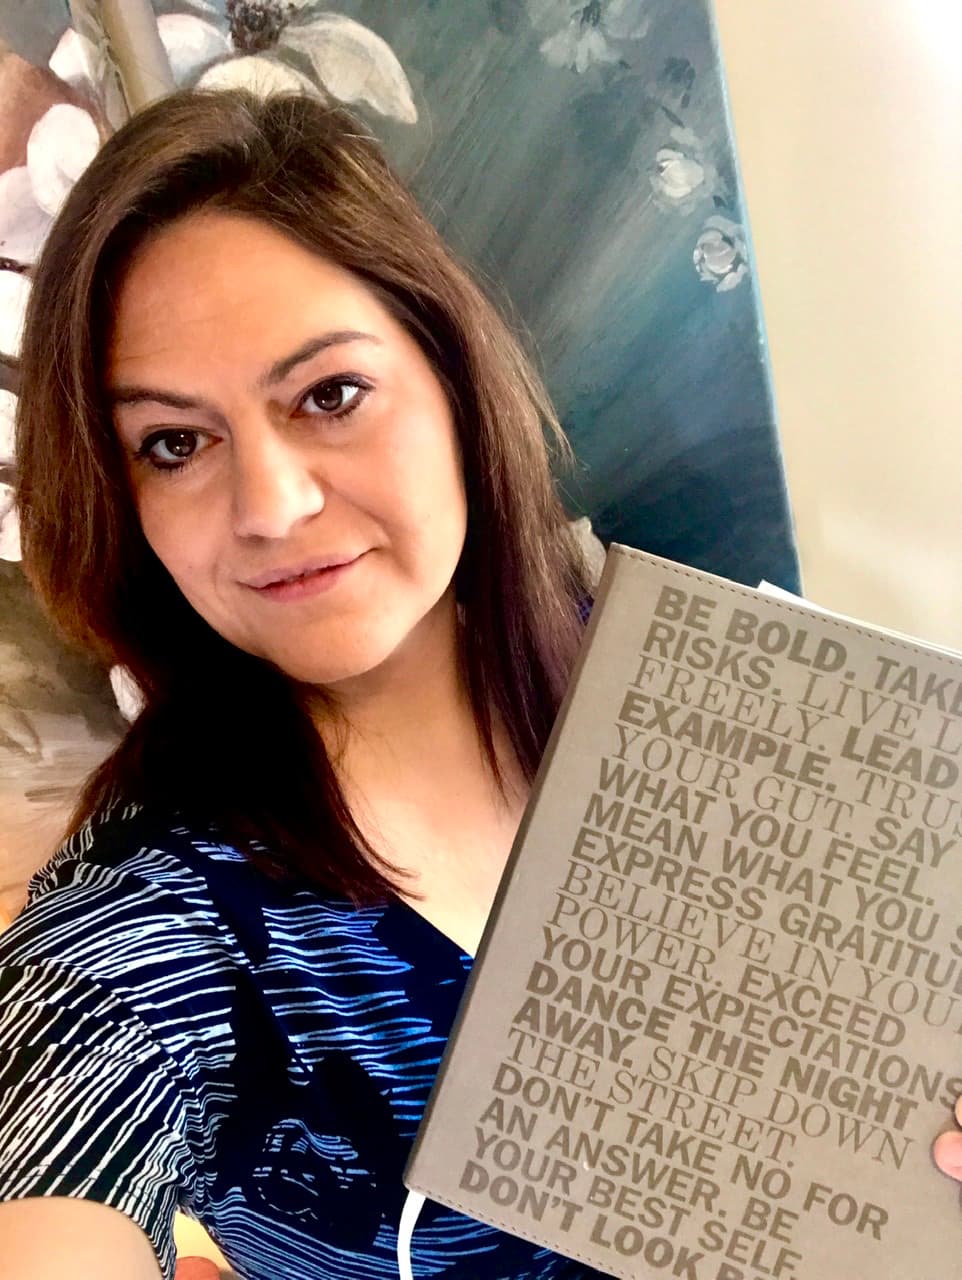 BE BOLD. TAKE
RISKS. LIVE L
FREELY. LEAD
EXAMPLE. TRUS
YOUR GUT. SAY
WHAT YOU FEEL.
MEAN WHAT YOU S
EXPRESS GRATITU
BELIEVE IN YOU
POWER. EXCEED
YOUR EXPECTATIONS
DANCE THE NIGHT
AWAY. SKIP DOWN
THE STREET.
DON'T TAKE NO FOR
AN ANSWER. BE
YOUR BEST SELF.
DON'T LOOK B